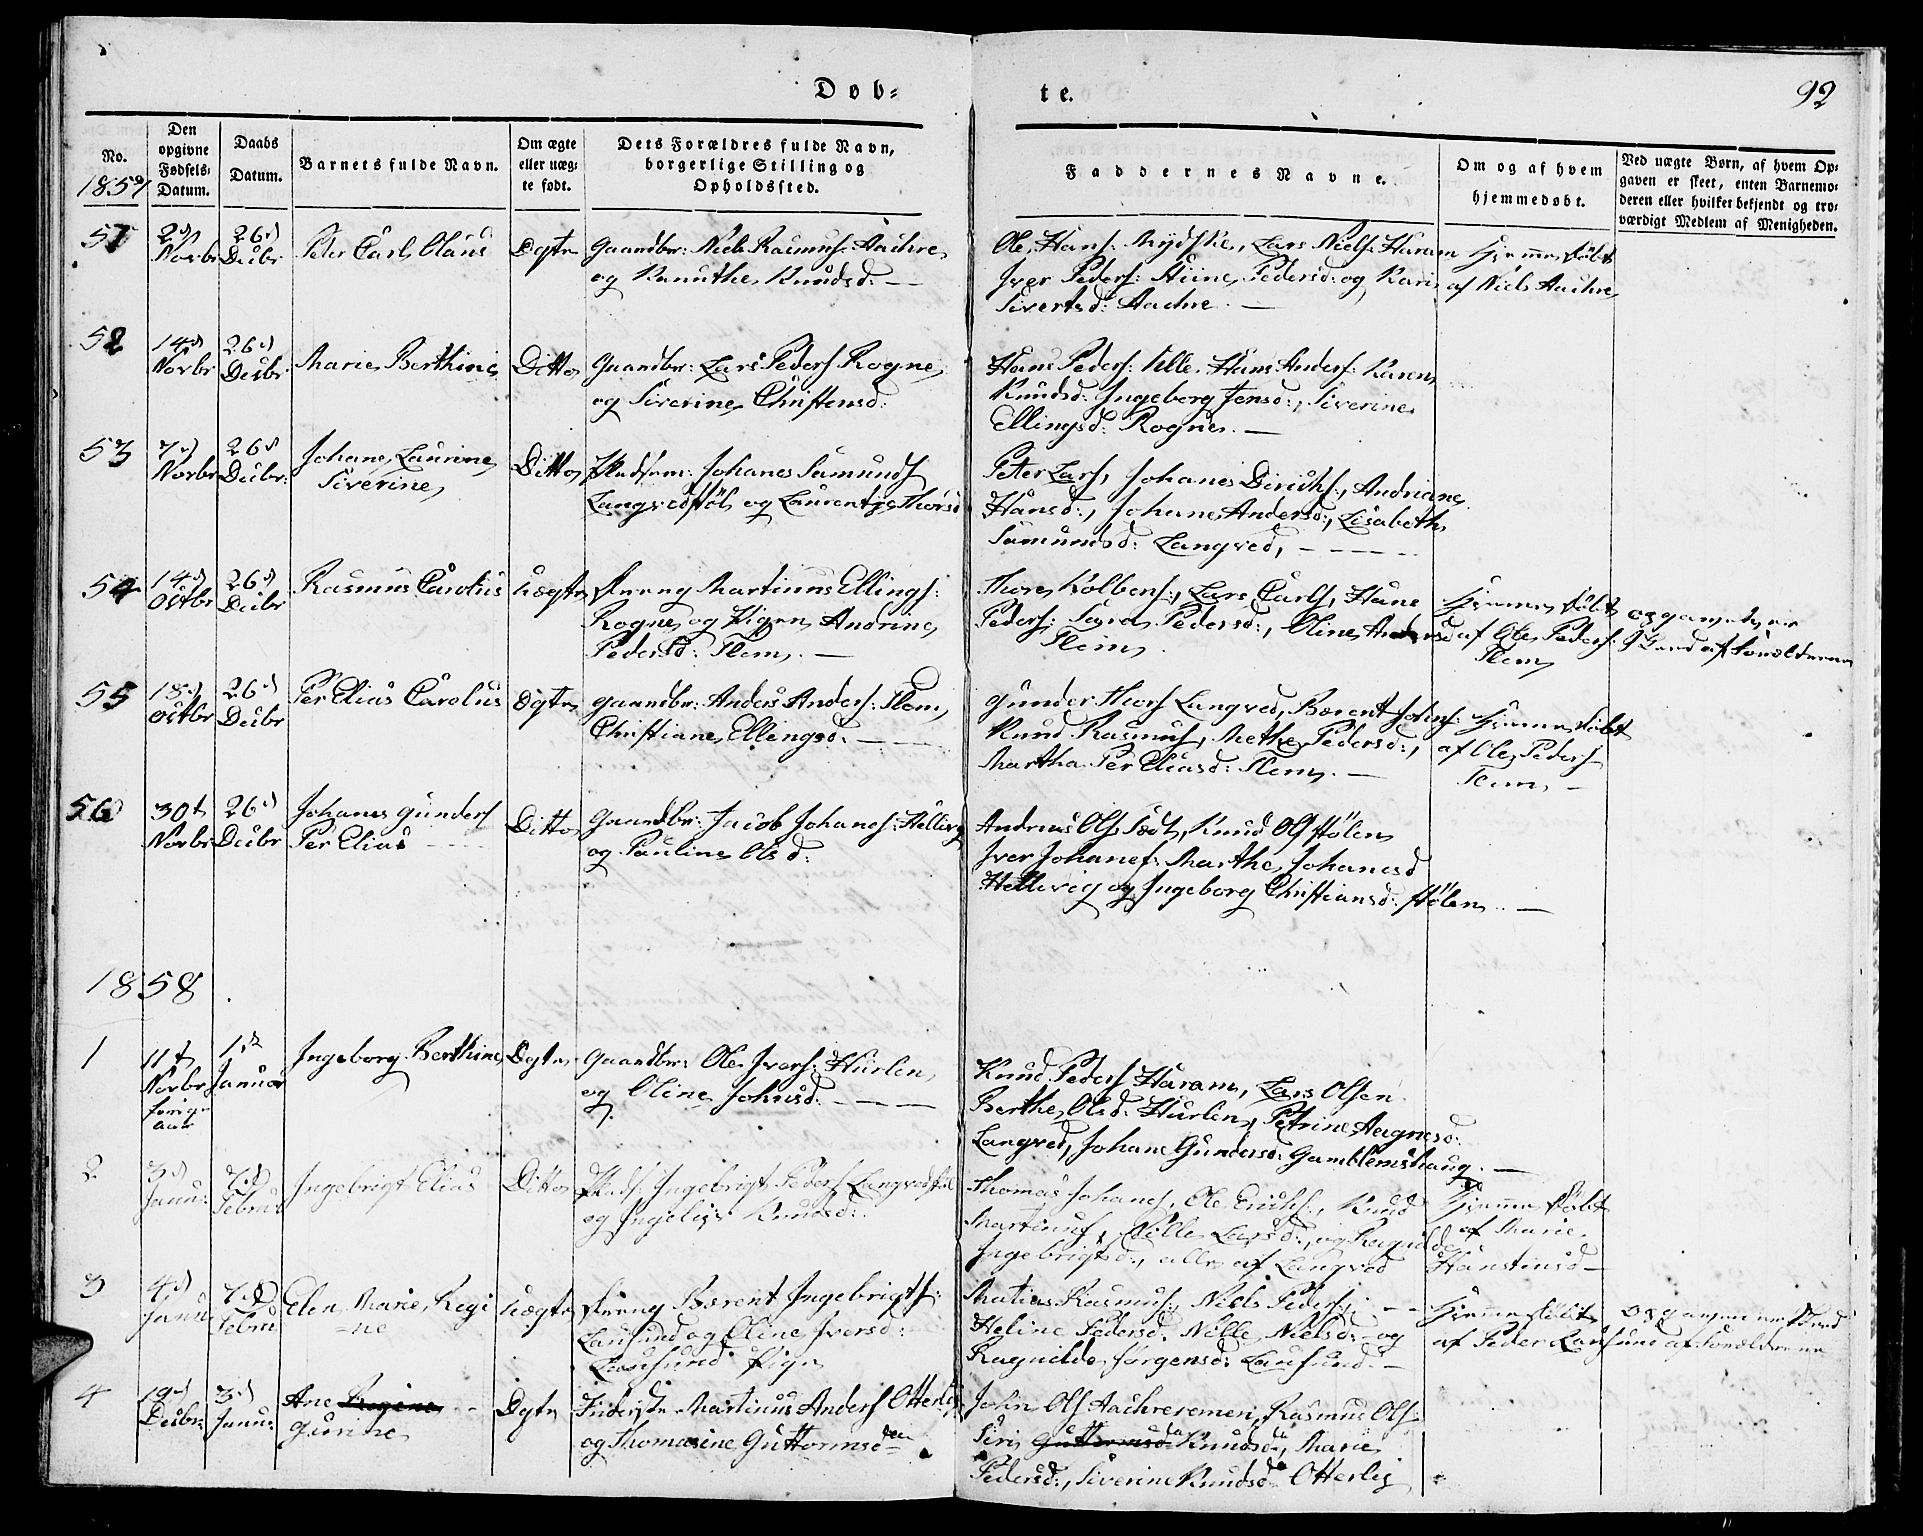 Døb=
te.
92
No.
1857
Den
opgivne
Fødsels-
Datum.
Daabs
Datum.
Barnets fulde Navn.
Om ægte
eller uæg-
te født.
Dets Forældres fulde Navn,
borgerlige Stilling og
Opholdssted.
Faddernes Navne.
Om og af hvem
hjemmedøbt.
Ved uægte Børn, af hvem Op-
gaven er skeet, enten Barnemo-
deren eller hvilket bekjendt og tro-
værdigt Medlem af Menigheden.
51
Novbr
26d
Decbr
Peder Carl Olaus
Ægte
Gaardbr: Niels Rasmus: Aachre
og Knuthe Knudsd:
Ole Hans: Mydske, Lars Niels: Haram
Iver Peders: Stine Pedersd: og Kari
Sivertsd: Aachre
Hjemmedøbt
af Niels Aachre
52
14d
Novbr
26d
Decbr
Marie Berthine
Ditto
Gaardbr: Lars Peders Rogne
og Siverine Christensd:
Hans Peders: Ulle, Hans Anders: Karen
Knudsd: Ingeborg Jensd:, Siverine
Ellingsd: Rogne
53
7d
Novbr
26d
Decbr:
Johane Laurine
Siverine
Ditto
Pladsm: Johanes Samunds
Langvedstøl og Laurentze Thorsd
Peter Lars, Johanes Dirichs:, Andriane
Hansd:, Johane Andersd:, Lisabeth
Samunsd: Langved,
54
14d
Octbr
26d
Decbr
Rasmus Carolus
Uægte
Dreng Martinus Ellings:
Rogne og Pigen Andrine
Pedersd: Flem
Thore Kolbens:, Lars Carls, Hans
Peders: Sara Pedersd:, Oline Andersd
Flem
Hjemmedøbt
af Ole Peders:
Flem
opgaven er
skeed af Forældrene
55
18d
Octbr
26d
Decbr
Per Elias Carolus
Ægte
Gaardbr: Anders Anders: Flem,
Christiane Ellingsd:
Gunder Thors Langved, Bærent Johns:
Knud Rasmus, Methe Pedersd:,
Martha Per Eliasd: Flem
Hjemmedøbt
af Ole Peders
Flem
56
30t
Novbr
26d
Decbr
Johanes Gunders
Per Elias
Ditto
Gaardbr: Jacob Johanes: Hellevig
og Pauline Olsd:
Andreas Ols Sædt, Knud Ols Støler
Iver Johanes: Marthe Johanesd
Hellevig og Ingeborg Christiansd: Støler
1858
1
11t
Novbr
forige
aar
1ste
Januar
Ingeborg Berthine
Ægte
Gaardbr: Ole Ivers: Hurlen
og Oline Johnsd:
Knud Peders Haram, Lars Olsen
Berthe Olsd: Hurlen, Petrine Aagnesd:
Langved, Johane Gundersd: Gamblemshaug
2
3d
Janu:
7d
Febru
Ingebrigt Elias
Ditto
Plads: Ingebrigt Peders Langvedstøl
og Ingelise Knudsd:
Thomas Johanes, Ole Erichs:, Knud
Martinus, Nille Larsd:, og Ragnilde
Ingebrigtsd:, alle af Langved
Hjemmedøbt
af Marie
Hanstinsd
3
4d
Janu
7d
Febru
Elen Marie Regi
ne
Uægte
Dreng Bærent Ingebrigts:
Lausund og Oline Iversd:
Lausund Pige
Matias Rasmus:, Niels Peders:,
Heline Pedersd: Nille Nielsd: og
Ragnilde Jørgensd: Lausund
Hjemmedøbt
af Peder Lausund
opgaven er skeed
af Forældrene
4
19d
Decbr:
3d
Janu:
Ane Regine
Gurine
Ægte
Inderste Martinus Anders Otterlei
og Thomasine Guttormsd
John Ols Aachreremen, Rasmus Ols:
Siri Guttormsd Knudsd:, Marie
Pedersd:, Siverine Knudsd Otterlei